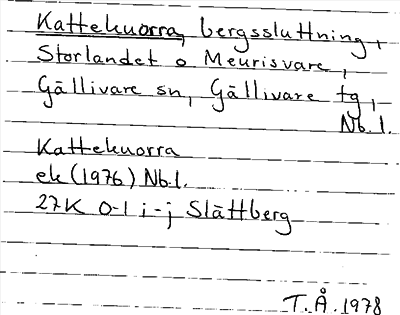 Kattekuorra, bergssluttning,
Storlandet o Meurisvare,
Gällivare sn, Gällivare tg,
Nb.l.
Kattekuorra
ek (1976) Nb.l.
27K 0-1 i-j Slättberg
T.Å. 1978